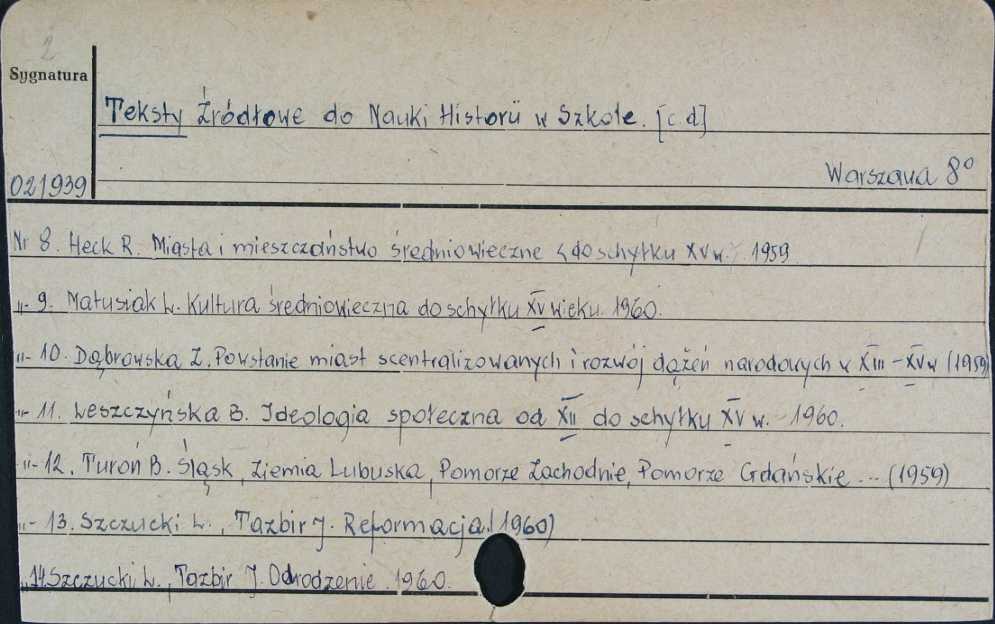 2
Sygnatura
Teksty Źródłowe do Nauki Historii w Szkole. [c.d]
Warszawa 8°
021939
Nr 8. Heck R. Miasta i mieszczaństwo średniowieczne <do schyłku XV w. 1959
-"- 9. Matusiak L. Kultura średniowieczna do schyłku XV wieku. 1960.
-"- 10. Dąbrowska Z. Powstanie miast scentralizowanych i rozwój dążeń narodowych w XIII - XV w (1959)
-"- 11. Leszczyńska B. Ideologia społeczna od XII do schyłku XV w. 1960.
-"- 12. Turoń B. Śląsk, Ziemia Lubuska, Pomorze Zachodnie, Pomorze Gdańskie ... (1959)
-"- 13. Szczucki L., Tazbir J. Reformacja. (1960)
-"- 14 Szczucki L., Tazbir J. Odrodzenie. 1960.